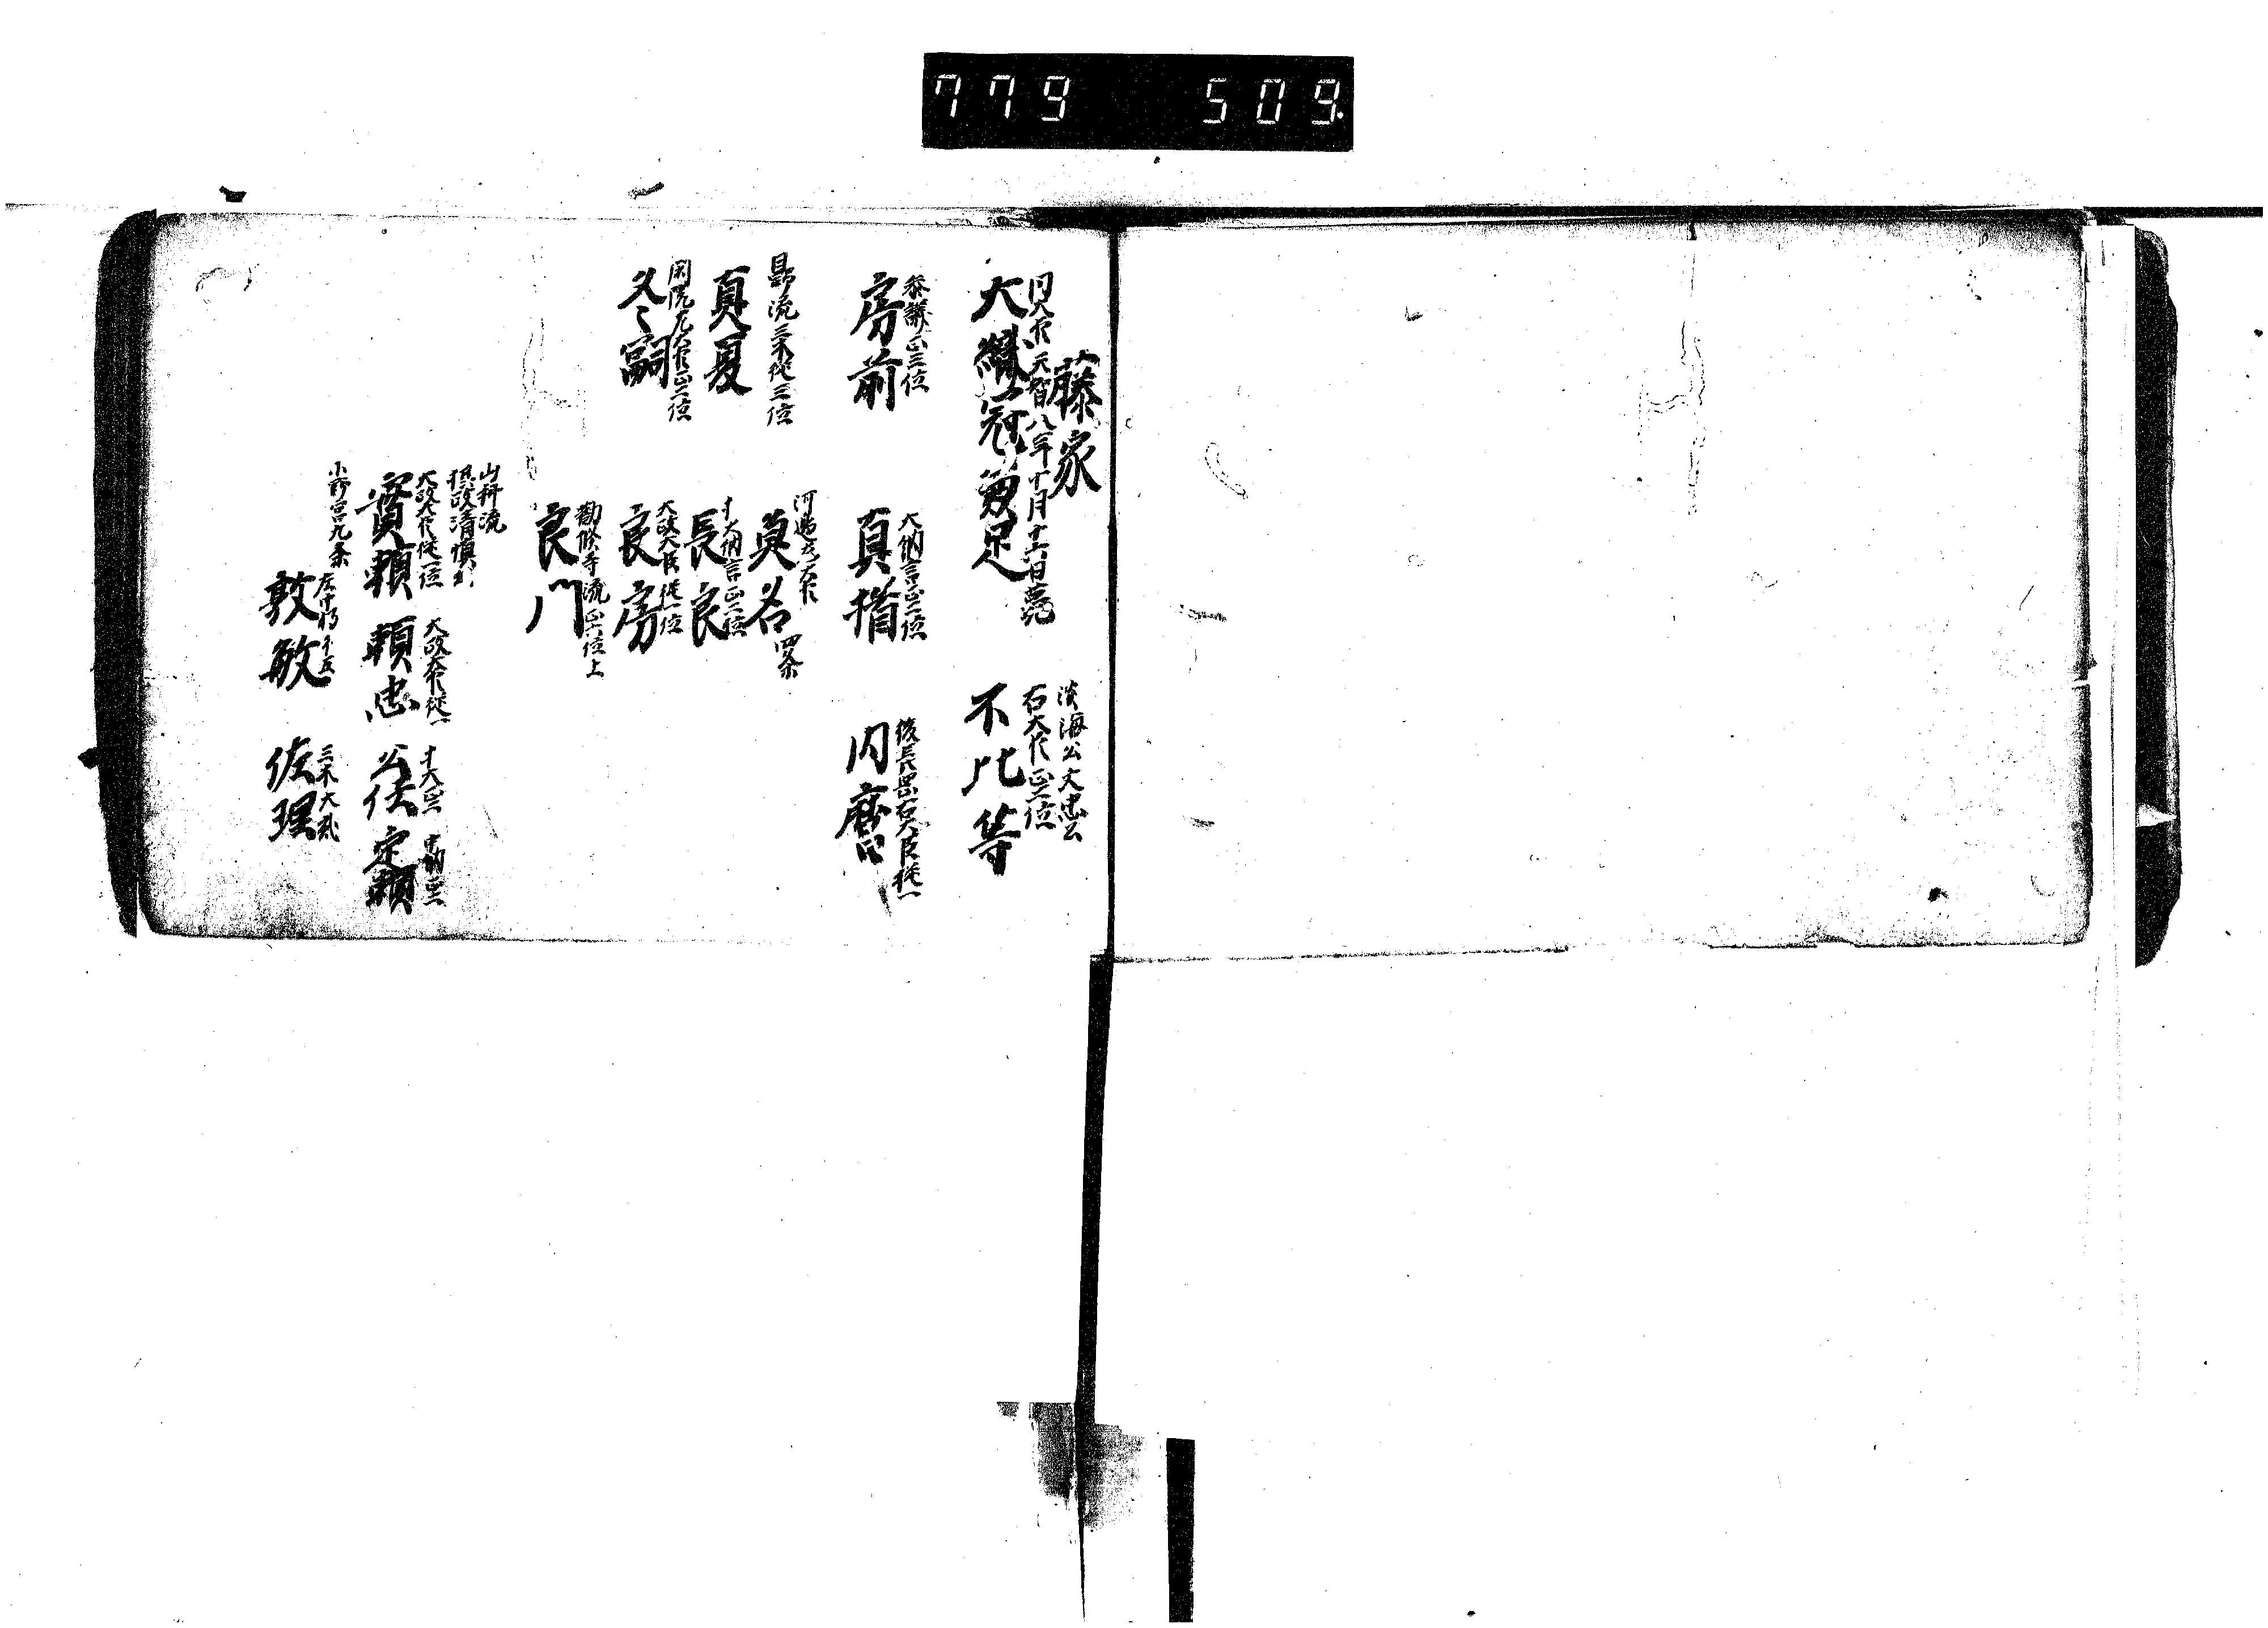 779 509
藤家
内大臣 天智八年十月十六日薨
大織冠 鎌足
淡海公文忠公
右大臣正二位
不比等
参議正三位
房前
大納言正二位
真楯
後長岡右大臣従一
内麿
日野流 三木従三位
真夏
閑院左大臣正二位
冬嗣
河邊左大臣
四条
中納言正二位
長良
太政大臣従一位
良房
勧修寺流正六位上
良門
山科流
摂政清慎公
太政大臣従一位
實頼
太政大臣従一
頼忠
十大正二
公任
中納正二
定頼
小野宮九条
敦敏
三木大弐
佐理